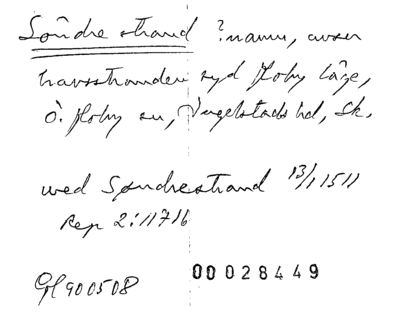 Søndre strand ?namn, avser
havsstranden syd Hoby läge,
Ö. Hoby sn, Ingelstads hd, Sk.
wed Søndrestrand 13/1 1511
Rep 2:11716
900508
00028449